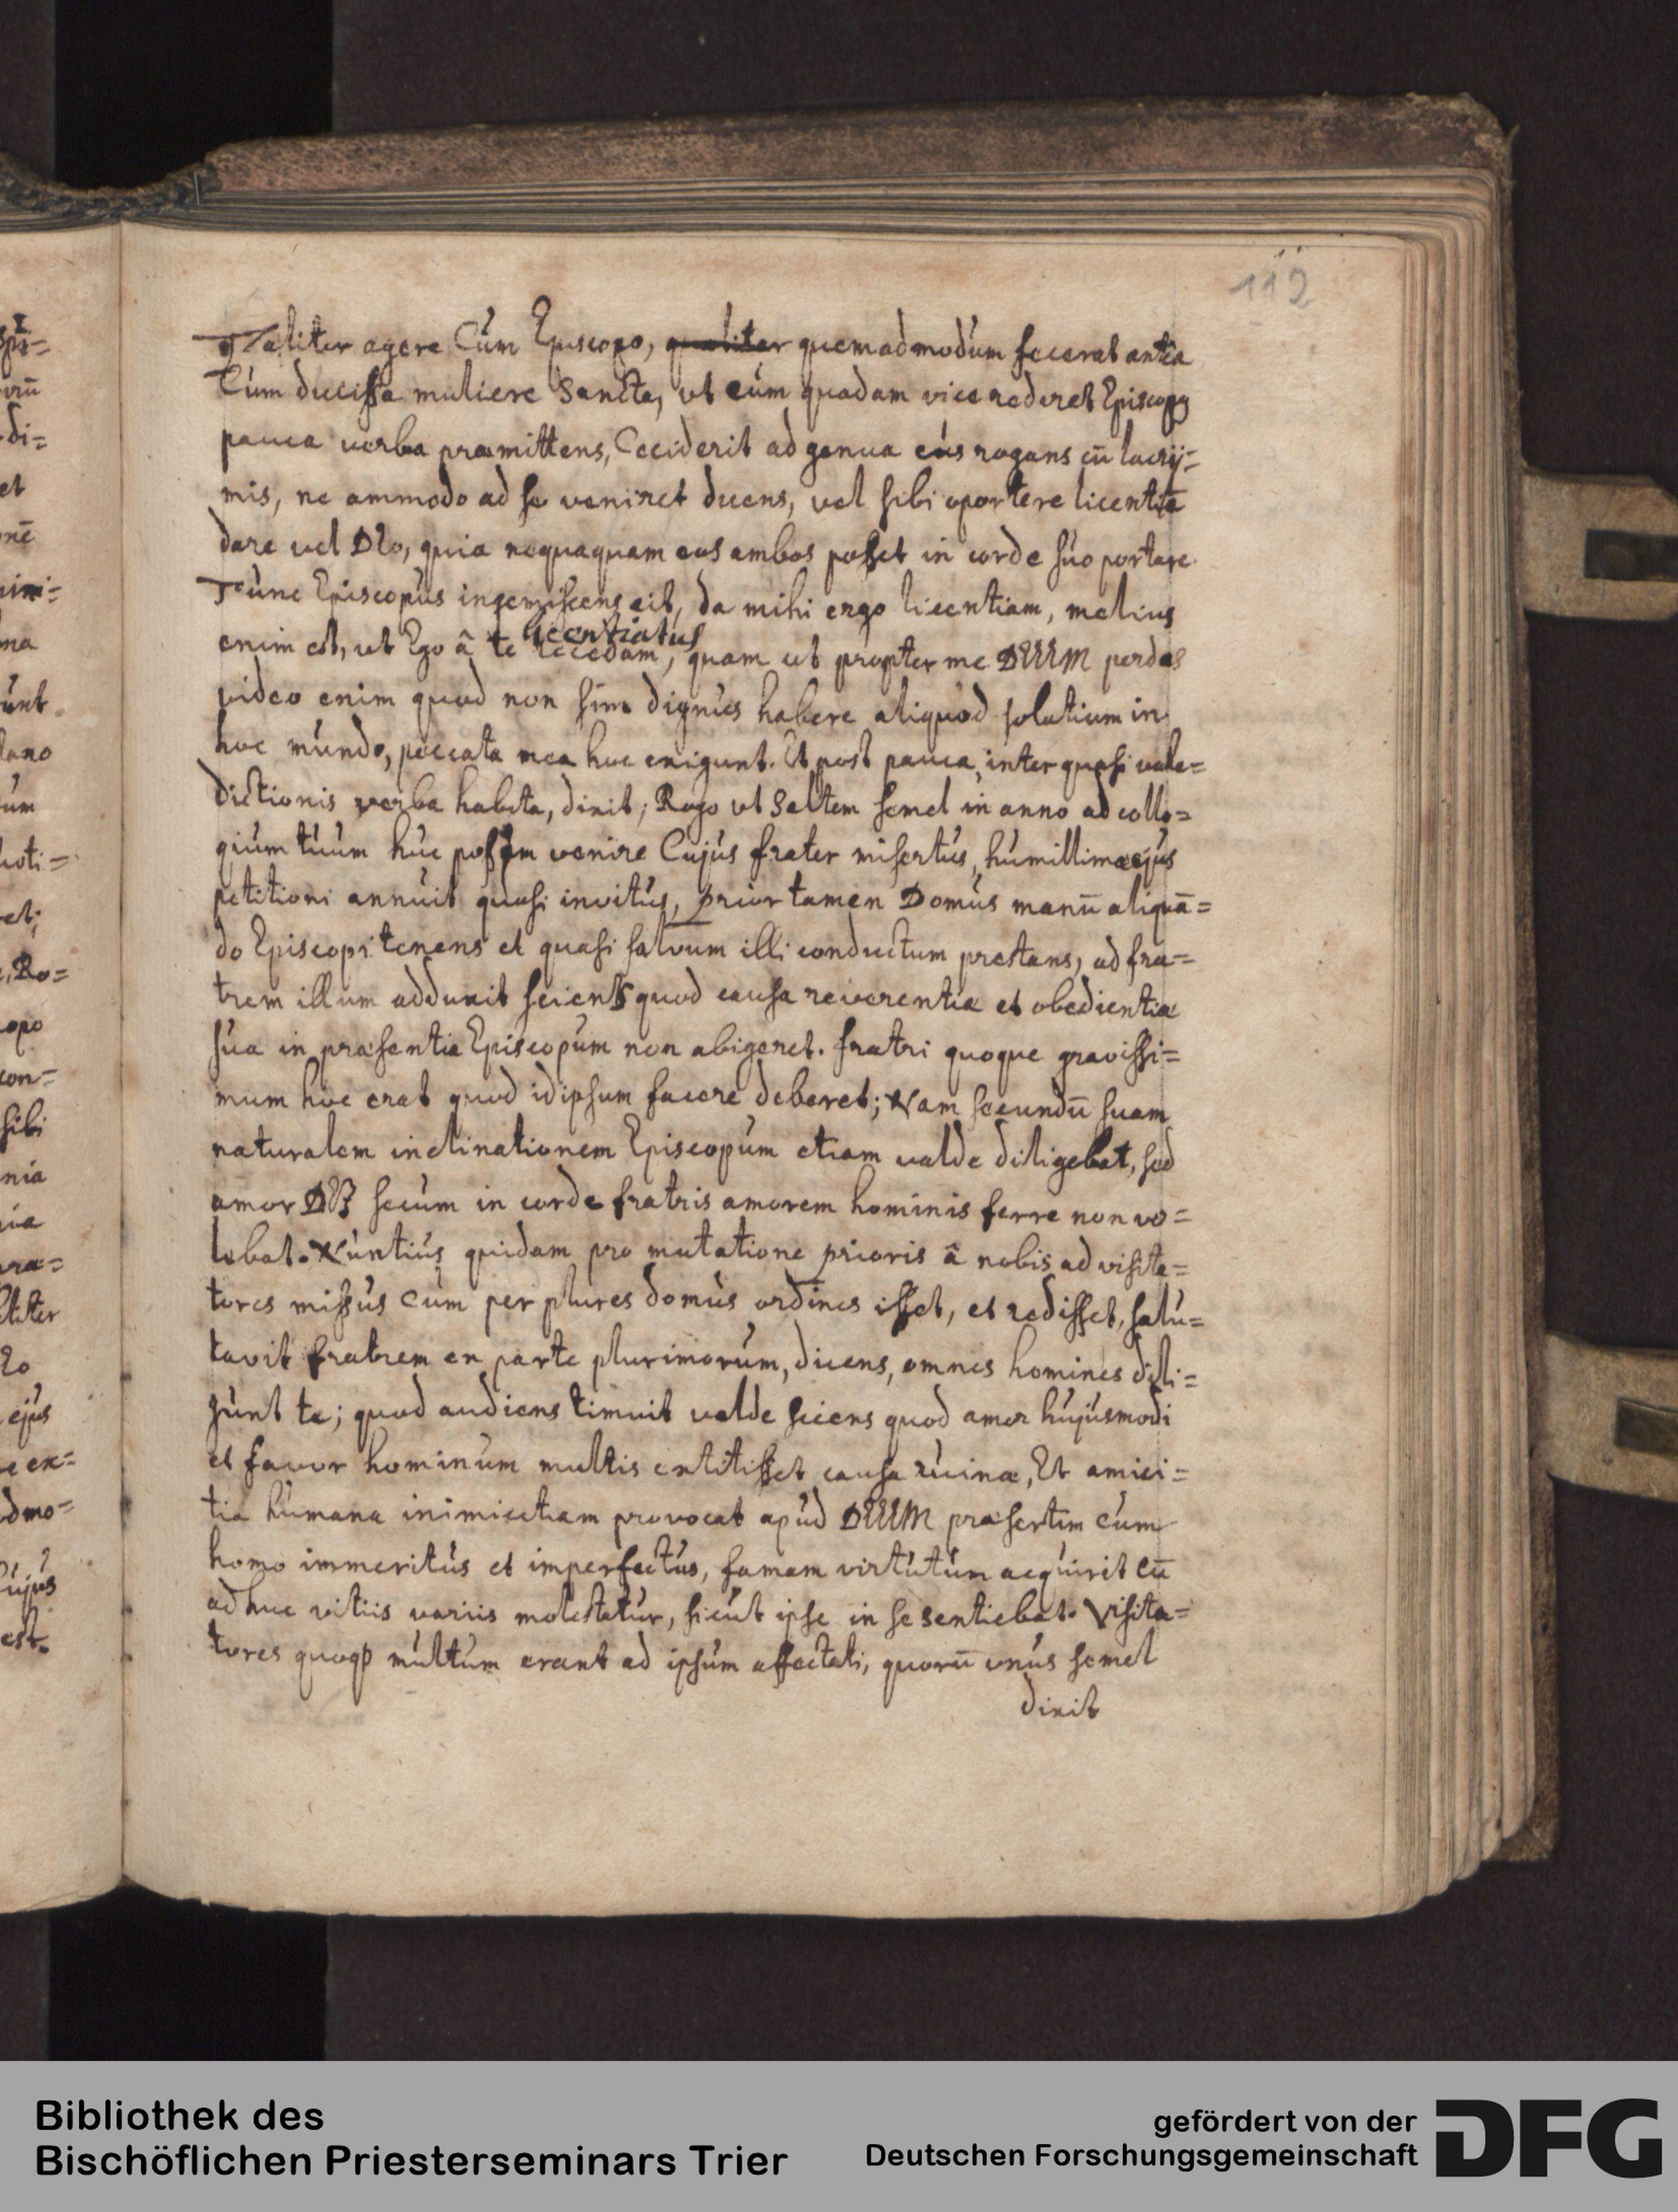 112
Taliter agere Cùm Episcopo, qualiter quemadmodùm fecerat antea
Cùm ducissa muliere Sancta, ut cùm quadam vice rediret Episcopq
pauca verba præmittens, Ceciderit ad genua eius rogans cū lacrÿ=
mis, ne ammodo ad se veniret dicens, vel sibi oportere licentiā
dare vel DEo, quia nequaquam eos ambos posset in corde sùo portare.
Tùnc Episcopùs ingemiscens ait, da mihi ergo licentiam, melius
enim est, ut Ego â te licentiatus recedam, quam ut propter me DEUM perdas
video enim quod non sim dignùs habere aliquod solatium in
hoc mùndo, peccata mea hoc exigunt. Et post pauca, inter quasi vale=
dictionis verba habita, dixit; Rogo ut Saltem semel in anno ad collo=
qium tùum hùc possem venire Cujùs frater misertùs, hùmillimæ ejùs
petitioni annuit quasi invitùs, prior tamen Domùs manū aliquā=
do Episcopi tenens et quasi salvum illi conductum prestans, ad fra=
trem illum adduxit sciens quod causa reverentiæ et obedientiæ
sùa in præsentia Episcopùm non abigeret. fratri quoque gravissi=
mum hoc erat quod id ipsum facere deberet; Nam secundū suam
naturalem inclinationem Episcopùm etiam valde diligebat, sed
amor DEI secùm in corde fratris amorem hominis ferre non vo=
lebat. Nùntiùs quidam pro mutatione prioris â nobis ad visita=
tores missùs Cùm per plures domùs ordines isset, et redisset, salù=
tavit fratrem ex parte plurimorùm, dicens, omnes homines dili=
gùnt te; quod audiens timuit valde sciens quod amor hùjùsmodi
et favor hominum multis extitisset causa rùinæ, Et amici=
tia hùmana inimicitiam provocat apùd DEUM præsertim cùm
homo immeritùs et imperfectùs, famam virtùtùm acqùirit cū
ad huc vitiis variis molestatùr, sicùt ipse in se sentiebat. Visita=
tores quoqꝫ mùltùm erant ad ipsùm affectati, quorū unùs semel
dixit
Bibliothek des
Bischöflichen Priesterseminars Trier
gefördert von der
Deutschen Forschungsgemeinschaft
DFG